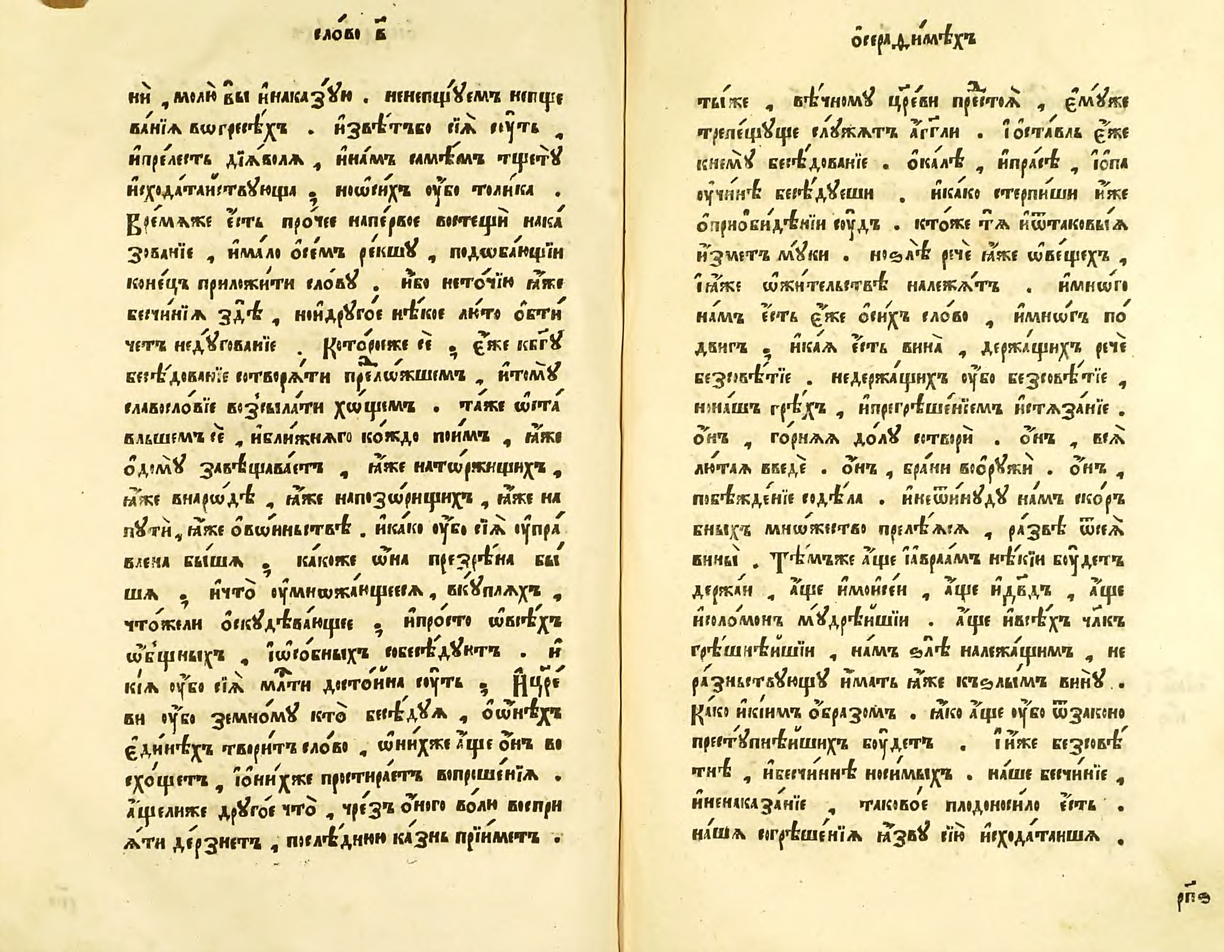 сло́во в҃
нѝ , молю̀ вы̀ и҆наказꙋ́ю . ненепщꙋ́емъ непще
ва́нїѧ вѡгрѣсѣ́хъ . и҆звѣ́тъбо сїѧ̀ сꙋ́ть ,
и҆пре́лесть дїѧ́волѧ , и҆на́мъ самѣ́мъ тщетꙋ̀
и҆схода́таиствꙋюща ; ноѡ҆си́хъ ᲂу҆́бо толи́ка .
Вре́мѧже є҆́сть про́чее напе́рвое востещѝ нака
зова́нїе , и҆ма́ло ѻ҆се́мъ ре́кшꙋ , подѡба́ющїи
коне́цъ приложи́ти сло́вꙋ . и҆́бо нето́чїю ꙗ҆́же
бесчи́нїѧ здѣ̀ , нои҆дрꙋго́е нѣ́кое лю́то ѻ҆бти
че́тъ недꙋ́гованїе . Кото́роеже сѐ ; є҆́же кб҃гꙋ
бесѣ́дованїе сотворѧ́ти пред̾лѡ́жшемъ , и҆томꙋ̀
славосло́вїе возсыла́ти хѡ́щемъ . та́же ѡ҆ста́
вльшемъ сѐ , и҆бли́жнѧго ко́ждо пои́мъ , ꙗ҆́же
ѻ҆домꙋ̀ завѣщава́етъ , ꙗ҆́же натѡ́ржищихъ ,
ꙗ҆́же внарѡ́дѣ , ꙗ҆́же напозѡ́рищихъ , ꙗ҆́же на
пꙋтѝ , ꙗ҆́же ѻ҆вѡ́иньствѣ . и҆ка́ко ᲂу҆́бо сїѧ̀ ᲂу҆пра́
влена бы́шѧ ; ка́коже ѡ҆́на презрѣ́на бы́
шѧ ; и҆что̀ ᲂу҆мнѡжа́ющеесѧ , вкꙋ́плѧхъ ,
что́жели ѻ҆скꙋдѣва́ющее ; и҆про́сто ѡ҆всѣ́хъ
ѡ҆́бщныхъ , і҆ѡ҆со́бныхъ собесѣ́дꙋютъ . и҆
кі́ѧ ᲂу҆́бо сїѧ̀ мл҃ти досто́йна сꙋ́ть ; И҆цр҃е
ви ᲂу҆́бо земно́мꙋ кто̀ бесѣ́дꙋѧ , ѻ҆ѡ҆́нѣхъ
є҆ди́нѣхъ твори́тъ сло́во , ѡ҆ни́хже а҆́ще ѻ҆́нъ во
схо́щетъ , і҆ѻ҆ни́хже простира́етъ вопроше́нїѧ .
а҆́щелиже дрꙋго́е что̀ , чре́зъ ѻ҆́ного во́лю воспри
ѧ́ти де́рзнетъ , послѣ́днюю ка́знь прїи́метъ .
ѻ҆серафи́мѣхъ
ты́же , вѣ́чномꙋ цр҃еви престоѧ̀ , є҆мꙋ́же
трепе́щꙋще слꙋ́жатъ а҆́гг҃ли . і҆ѻ҆ста́вль є҆́же
кнемꙋ̀ бесѣ́дованїе . ѻ҆ка́лѣ , и҆пра́сѣ , і҆ѻ҆па
ᲂу҆чи́нѣ бесѣ́дꙋеши . и҆ка́ко сте́рпиши и҆́же
ѻ҆прио҆би́дѣнїи сꙋ́дъ . кто́же тѧ̀ и҆ѿтаковы́ѧ
и҆́зметъ мꙋ́ки . ноѕлѣ̀ речѐ ꙗ҆́же ѡ҆ве́щехъ ,
і҆ꙗ҆́же ѡ҆жи́тельствѣ належа́тъ . и҆мнѡ́го
на́мъ є҆́сть є҆́же ѻ҆си́хъ сло́во , и҆мнѡ́гъ по́
двигъ ; и҆ка́ѧ є҆́сть вина̀ , держа́щихъ речѐ
безсовѣ́тїе . недержа́щихъ ᲂу҆́бо безсовѣ́тїе ,
нона́шъ грѣ́хъ , и҆прегрѣше́нїемъ и҆стѧза́нїе .
ѻ҆́нъ , го́рнѧѧ до́лꙋ сотворѝ . ѻ҆́нъ , всѧ̀
лю́таѧ введѐ . ѻ҆́нъ , бра́ни воорꙋжѝ . ѻ҆́нъ ,
побѣжде́нїе содѣ́ла . и҆неѿи́нꙋдꙋ на́мъ ско́р
бныхъ мно́жество прелѣ́ѧсѧ , ра́звѣ ѿсеѧ̀
вины̀ . Тѣ́мъже а҆́ще і҆авраа́мъ нѣ́кїи бꙋ́детъ
держа́и , а҆́ще и҆моисе́и , а҆́ще и҆дв҃дъ , а҆́ще
и҆соломо́нъ мꙋдрѣ́йшїи . а҆́ще и҆всѣ́хъ чл҃къ
грѣ́шнѣйшїи , на́мъ ѕлѣ̀ належа́щимъ , не
ра́зньствꙋющꙋ и҆́мать ꙗ҆́же къѕлы́мъ винꙋ̀ .
Ка́ко и҆кі́имъ ѻ҆́бразомъ . ꙗ҆́ко а҆́ще ᲂу҆́бо ѿзаконо
престꙋ́пнѣйшихъ бꙋ́детъ . і҆и҆́же безсовѣ́
тнѣ , и҆бесчи́ннѣ носи́мыхъ . на́ше бесчи́нїе ,
и҆ненаказа́нїе , таково́е плодоноси́ло є҆́сть .
на́шѧ согрѣше́нїѧ ꙗ҆́звꙋ сїю̀ и҆схода́таишѧ .
рп҃ѳ